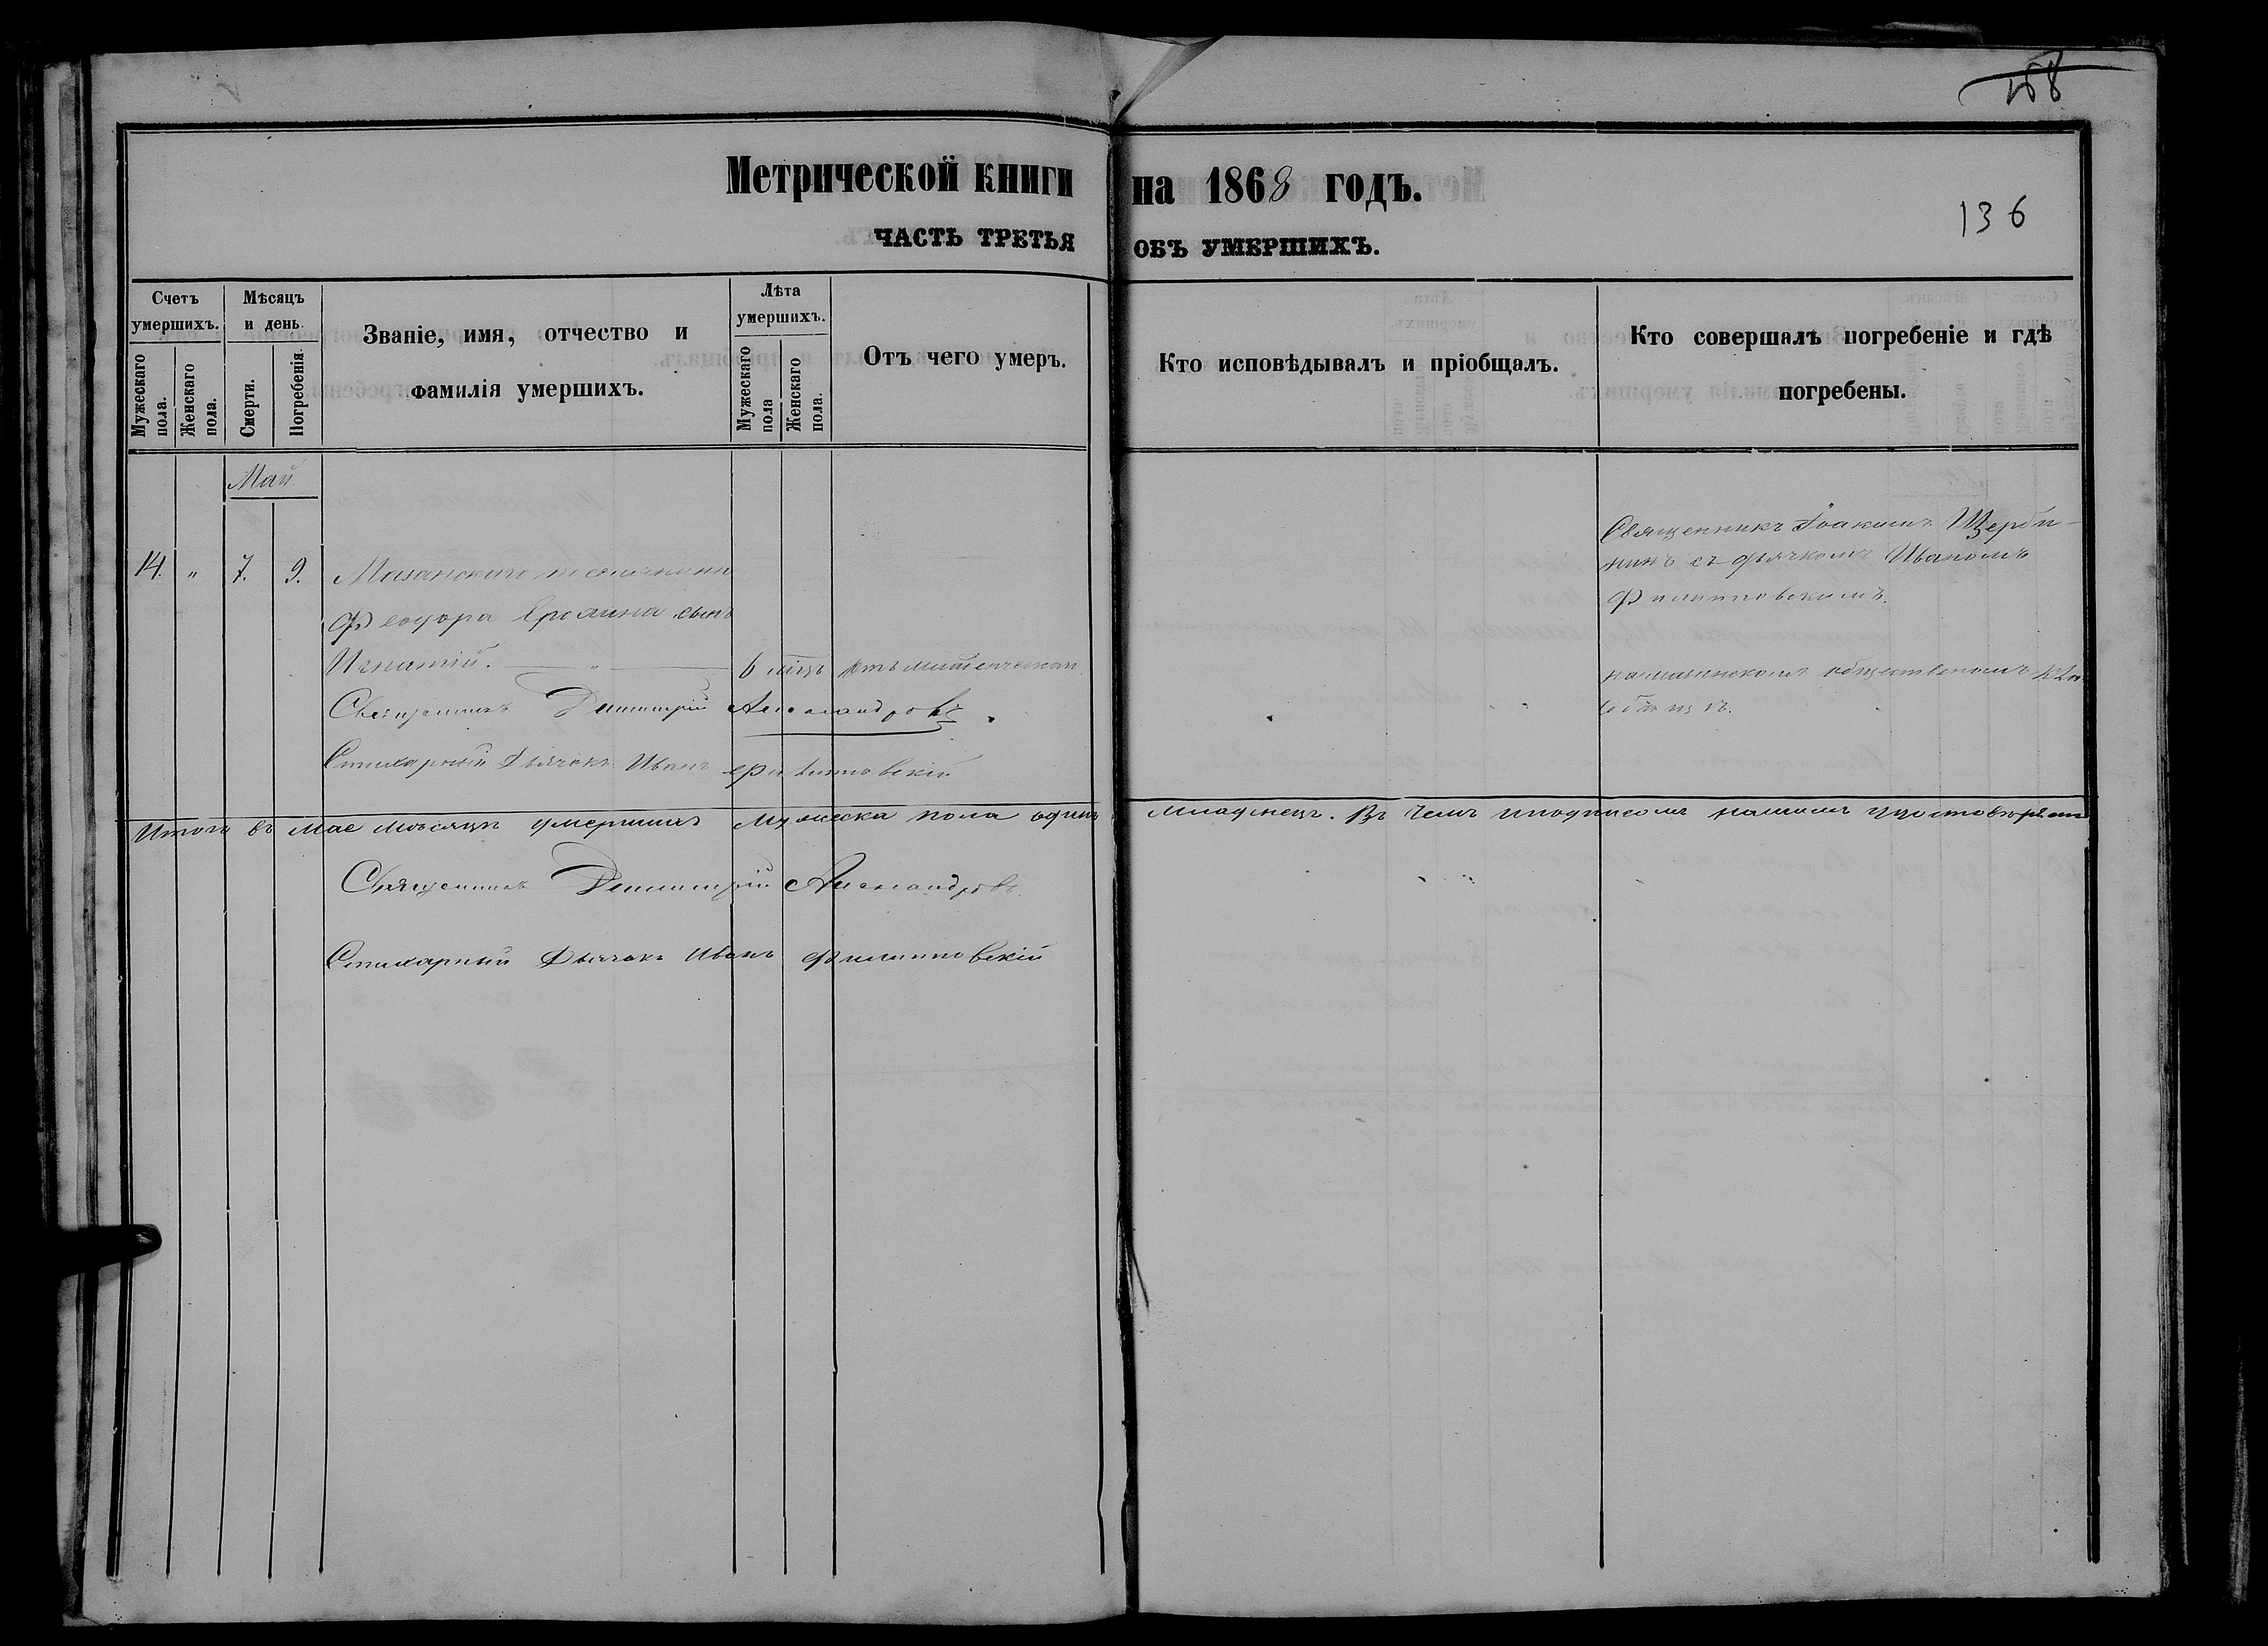 158
Метрической книги на 1868 годъ.
136
ЧАСТЬ ТРЕТЬЯ ОБЪ УМЕРШИХЪ.
Счетъ умершихъ.
Мужескаго пола.
Женскаго пола.
Мѣсяцъ и день.
Смерти.
Погребенія.
Званіе, имя, отчество и фамилія умершихъ.
Лѣта умершихъ.
Мужескаго пола
Женскаго пола.
Отъ чего умеръ.
Кто исповѣдывалъ и пріобщалъ.
Кто совершалъ погребеніе и гдѣ погребены.
Май
14. " 7. 9. Мазанскаго
Феодора сынъ
Игнатій. — " — 6 мѣц отъ
Священникъ Іоакимъ Щерби-
нинъ съ дьячкомъ Иваномъ
Филипповскимъ.
общественомъ кла
дбищѣ.
Священникъ Димитрій Александровъ.
Стихарный Дьячекъ Иванъ Филипповскій
Итого въ Мае мѣсяцѣ умершихъ Мужеска пола одинъ Младнецъ. Въ чемъ подписомъ нашимъ удостовѣряемъ
Священникъ Димитрій Александровъ.
Стихарный Дьячекъ Иванъ Филипповскій